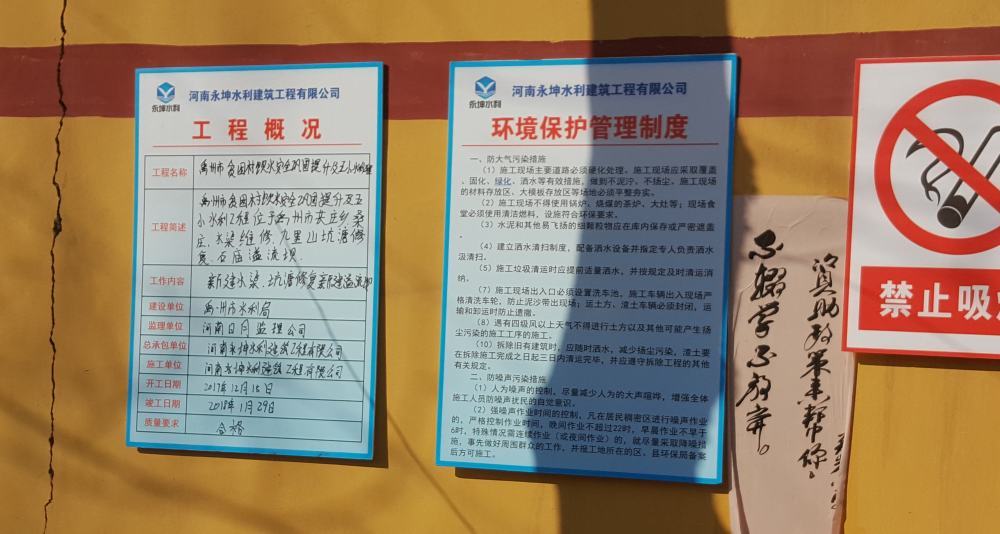 永坤水利
河南永坤水利建筑工程有限公司
工程概况
工程名称
禹州市贫困村饮水安全巩固提升及五小水利工程
工程简述
禹州市贫困村饮水安全巩固提升及五
小水利工程位于禹州市苌庄乡桑
庄、水梁维修、九里山坑塘修
复、石庙溢流坝.
工作内容
新建水渠、坑塘修复新建溢流坝
建设单位
禹州市水利局
监理单位
河南日月监理公司
总承包单位
河南永坤水利建筑工程有限公司
施工单位
河南永坤水利建筑工程有限公司
开工日期
2017年12月15日
竣工日期
2018年1月29日
质量要求
合格
永坤水利
河南永坤水利建筑工程有限公司
环境保护管理制度
一、防大气污染措施
（1）施工现场主要道路必须硬化处理。施工现场应采取覆盖
、固化、绿化、洒水等有效措施，做到不泥泞、不扬尘。施工现场
的材料存放区、大模板存放区等场地必须平整夯实。
（2）施工现场不得使用锅炉、烧煤的茶炉、大灶等；现场食
堂必须使用清洁燃料，设施符合环保要求。
（3）水泥和其他易飞扬的细颗粒物应在库内保存或严密遮盖
。
（4）建立洒水清扫制度，配备洒水设备并指定专人负责洒水
汲清扫。
（5）施工垃圾清运时应提前适量洒水，并按规定及时清运消
纳。
（7）施工现场出入口必须设置洗车池，施工车辆出入现场严
格清洗车轮，防止泥沙带出现场；运土方、渣土车辆必须封闭，运
输和卸运时防止遗撒。
（8）遇有四级风以上天气不得进行土方以及其他可能产生扬
尘污染的施工工序的施工。
（10）拆除旧有建筑时，应随时洒水，减少扬尘污染，渣土要
在拆除施工完成之日起三日内清运完毕，并应遵守拆除工程的其他
有关规定。
二、防噪声污染措施
（1）人为噪声的控制。尽量减少人为的大声喧哗，增强全体
施工人员防噪声扰民的自觉意识。
（2）强噪声作业时间的控制，凡在居民稠密区进行噪声作业
的，严格控制作业时间，晚间作业不超过22时，早晨作业不早于
6时，特殊情况需连续作业（或夜间作业）的，就尽量采取降噪措
施，事先做好周围群众的工作，并报工地所在的区、县环保局备案
后方可施工。
资助政策来帮你，
不辍学不放弃。
禁止吸